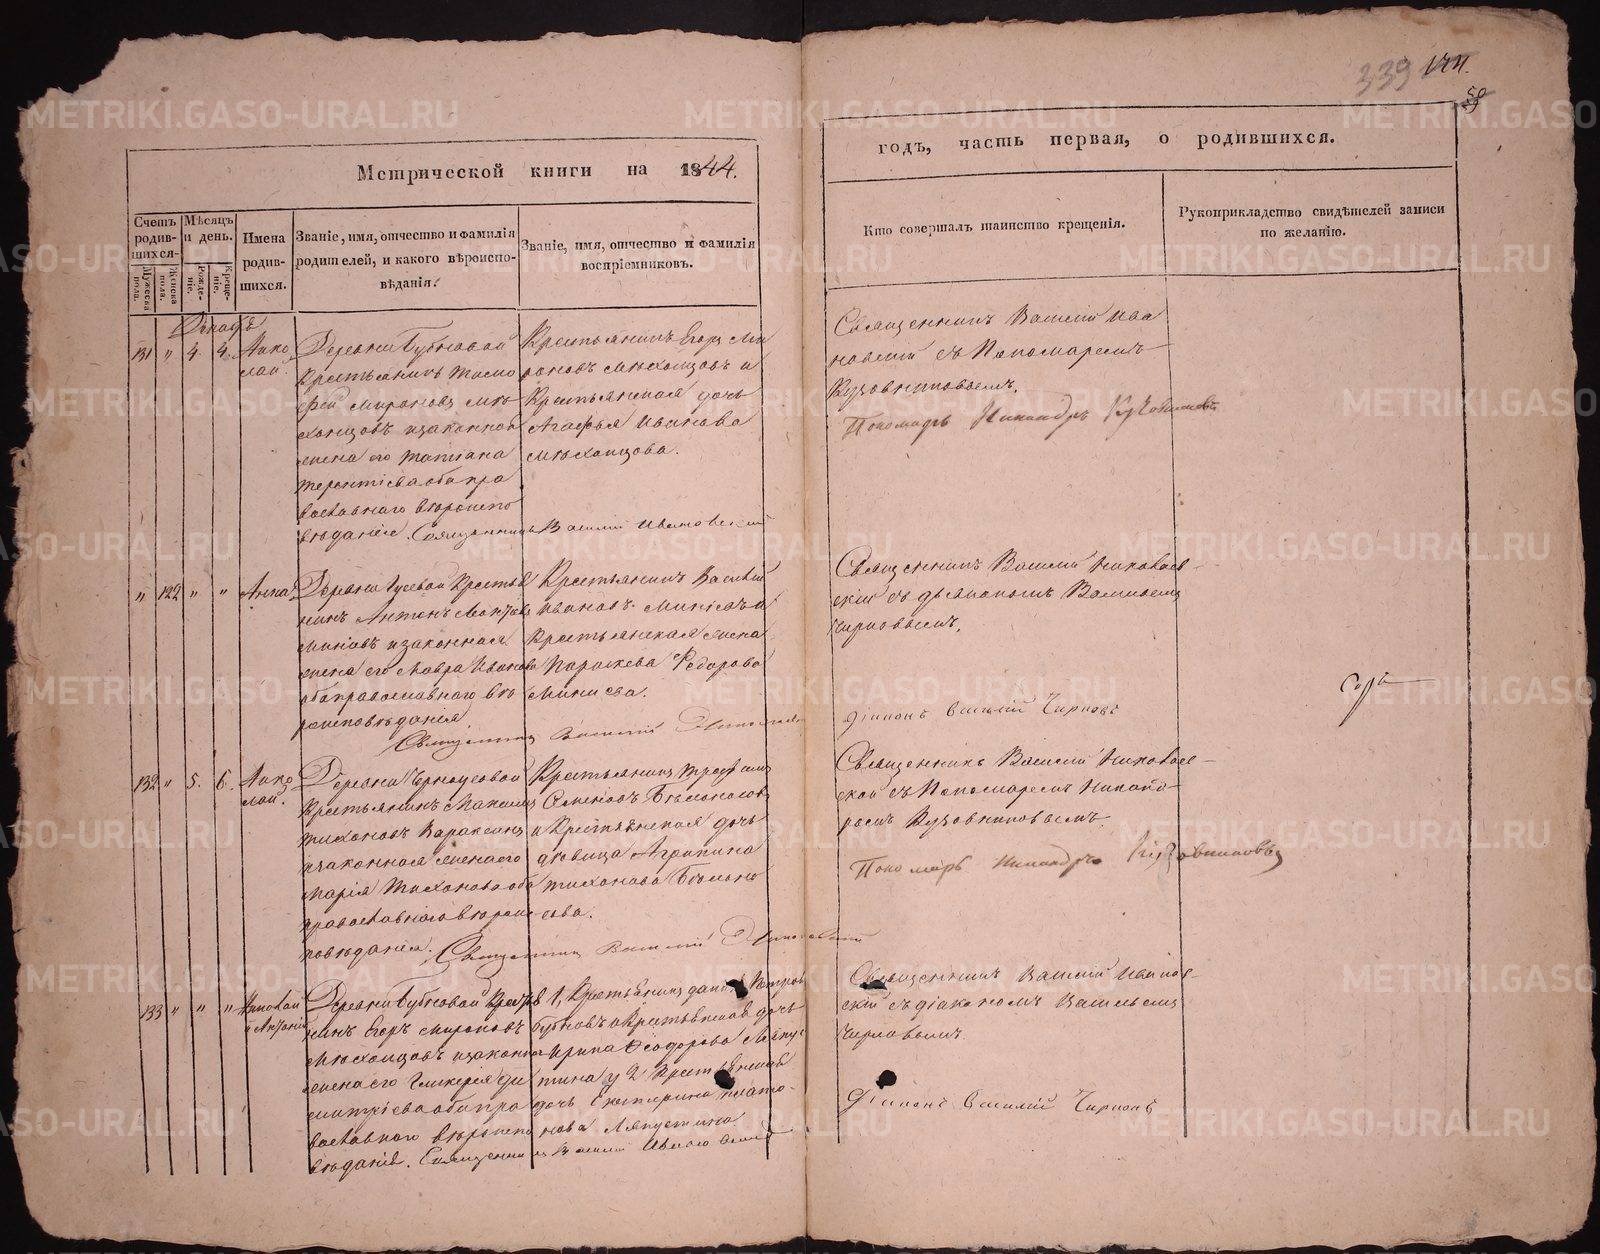 339
Метрической книги на 1844.
годъ, часть первая, о родившихся.
Счетъ родив-шихся.
Мужеска пола.
Женска пола.
Мѣсяцъ и день.
Рожде-нiе.
Креще-нiе.
Имена родив-шихся.
Званiе, имя, отчество и фамилiя родителей, и какого вѣроиспо-вѣданiя.
Званiе, имя, отчество и фамилiя воспрiемниковъ.
Кто совершалъ таинство крещенiя.
Рукоприкладство свидѣтелей записи по желанiю.
Декабрь
131 " 4. 4. Нико
лай.
Деревни Губновой
Крестьянинъ Тимо
фей Мироновъ Мѣ
хонцовъ и законная
жена его Татiана
Терентiева оба пра
вославнаго вѣроиспо
вѣданiя. Священникъ Василiй Ивановскiй
Крестьянинъ Егоръ Ми
роновъ Мѣхонцовъ и
Крестьянская дочь
Агафья Иванова
Мѣхонцова.
Священникъ Василiй Ива
новскiй съ Пономаремъ
Кузовниковымъ.
Пономарь Никандръ Кузовниковъ
" 122 " " Анна
Деревни Гуевой Крестья
нинъ Антонъ
Миновъ и законная
жена его Мавра Иванова
оба православнаго вѣ
роисповѣданiя.
Священникъ Василiй
Крестьянинъ Василiй
Ивановъ Минѣевъ и
Крестьянская жена
Параскева Федорова
Минѣева.
Священникъ Василiй Николаев-
скiй съ дьякономъ Васильемъ
Чирковымъ.
Дiаконъ Василiй Чирковъ
132 " 5. 6. Нико
лай.
Деревни Черноусовой
Крестьянинъ Максимъ
Тихоновъ Вараксинъ
и законная жена его
Марiя Тиханова оба
православнаго вѣроис
повѣданiя. Священникъ Василiй
Крестьянинъ Трофимъ
Семеновъ Бѣлоносовъ
и Крестьянская дочь
дѣвица Агрипина
Тиханова Бѣлоно
сова.
Священникъ Василiй Николаев-
скiй съ Пономаремъ Никанд-
ромъ Кузовниковымъ.
Пономарь Никандръ Кузовниковъ
133 " " " Николай
и Антонiй
Деревни Губновой Крестья
нинъ Егоръ Мироновъ
Мѣхонцовъ и законная
жена его Гликерiя Ди
митрiева оба пра
вославнаго вѣроиспо
вѣданiя. Священникъ Василiй Ивановскiй
1, Крестьянинъ Петров
Губновъ и Крестьянская дочь
Ирина Феодорова Ляпус
тина у 2 Крестьянская
дочь Екатерина Плато-
нова Ляпустина
Священникъ Василiй Иванов-
скiй съ дiакономъ Васильемъ
Чирковымъ.
Дiаконъ Василiй Чирковъ
METRIKI.GASO-URAL.RU